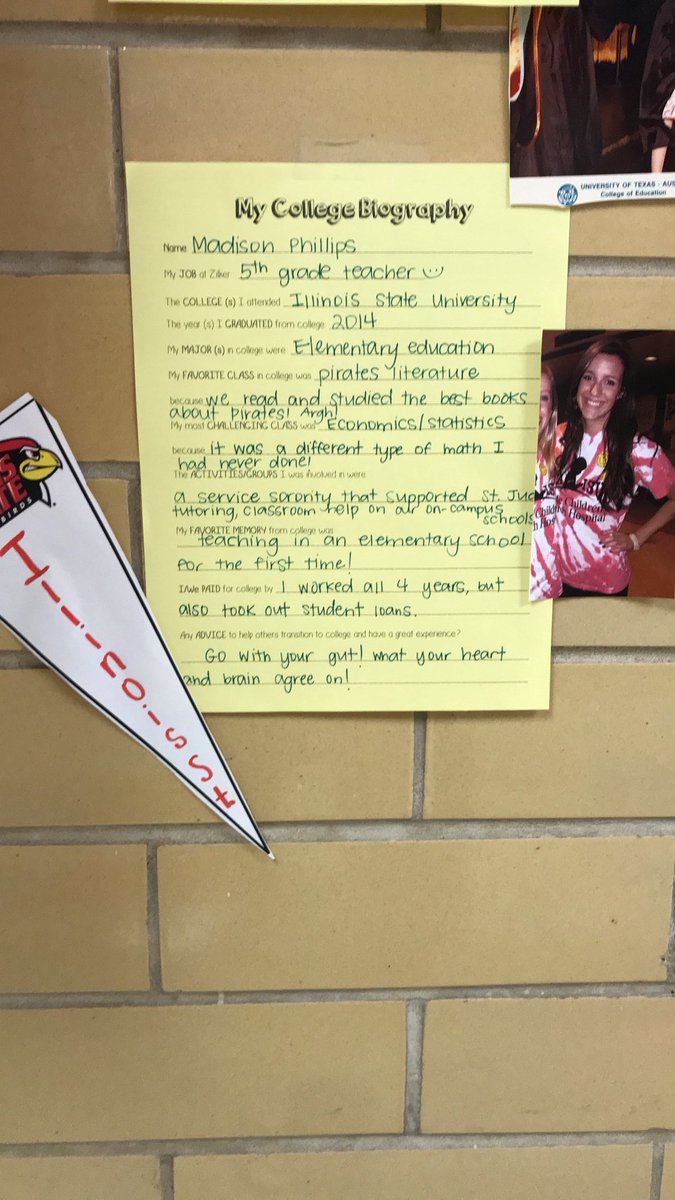 UNIVERSITY OF TEXAS - AUS
College of Education
My College Biography
Name Madison Phillips
My JOB at Zilker 5th grade teacher
The COLLEGE (s) I attended Illinois State University
The year (s) I GRADUATED from college 2014
My MAJOR (s) in college were Elementary education
My FAVORITE CLASS in college was pirates literature
because we read and studied the best books
about pirates! Argh!
My most CHALLENGING CLASS was Economics/statistics
because it was a different type of math I
had never done!
The ACTIVITIES/GROUPS I was involved in were
a service sorority that supported St. Jude
tutoring, classroom help on our on-campus
schools
My FAVORITE MEMORY from college was
teaching in an elementary school
for the first time!
I/We PAID for college by I worked all 4 years, but
also took out student loans.
Any ADVICE to help others transition to college and have a great experience?
Go with your gut! what your heart
and brain agree on!
Children
Hospital
BIRDS
Illinois St